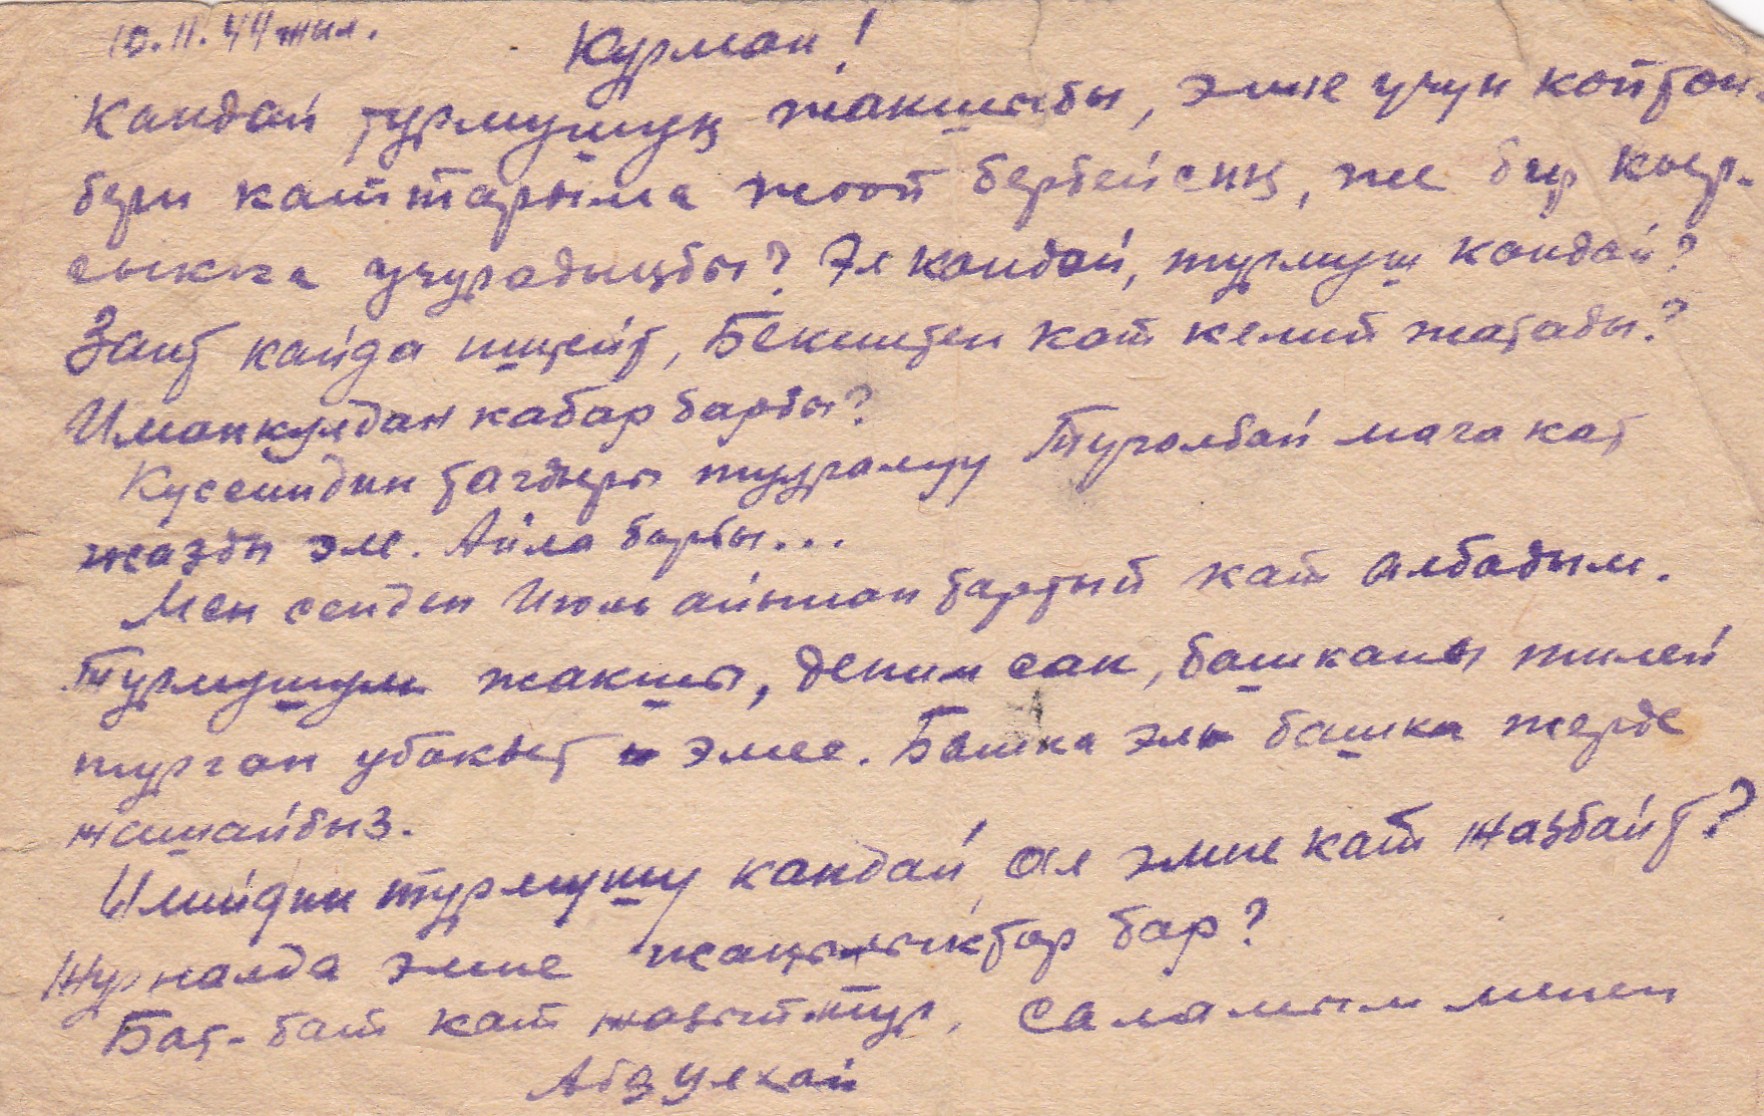 10.11.44 жыл.
Курман!
Кандай турмушуң жакшыбы, эмне учун көптөн-
бери каттарыма жооп бербейсиң, же бир кыер-
сыкка учурадыңбы? Эл кандай, турмуш кандай?
Заит кайда иштейт, Бекиштен кат келип жатабы?
Иманкулдан кабар барбы?
Кусеиндин тагдыры тууралуу Туголбай мага кат
жазды эле. Айла барбы...
Мен сенден Июль айынан тартып кат албадым.
Турмушум жакшы, деним сак, башканы тилей
турган убакыт эмес. Башка эл башка жерде
жашайбыз.
Ымийдин турмушу кандай, ал эмне кат жазбайт?
Журналда эмне жаңылыктар бар?
Бат-бат кат жазып тур, саламым менен
Абдулхай